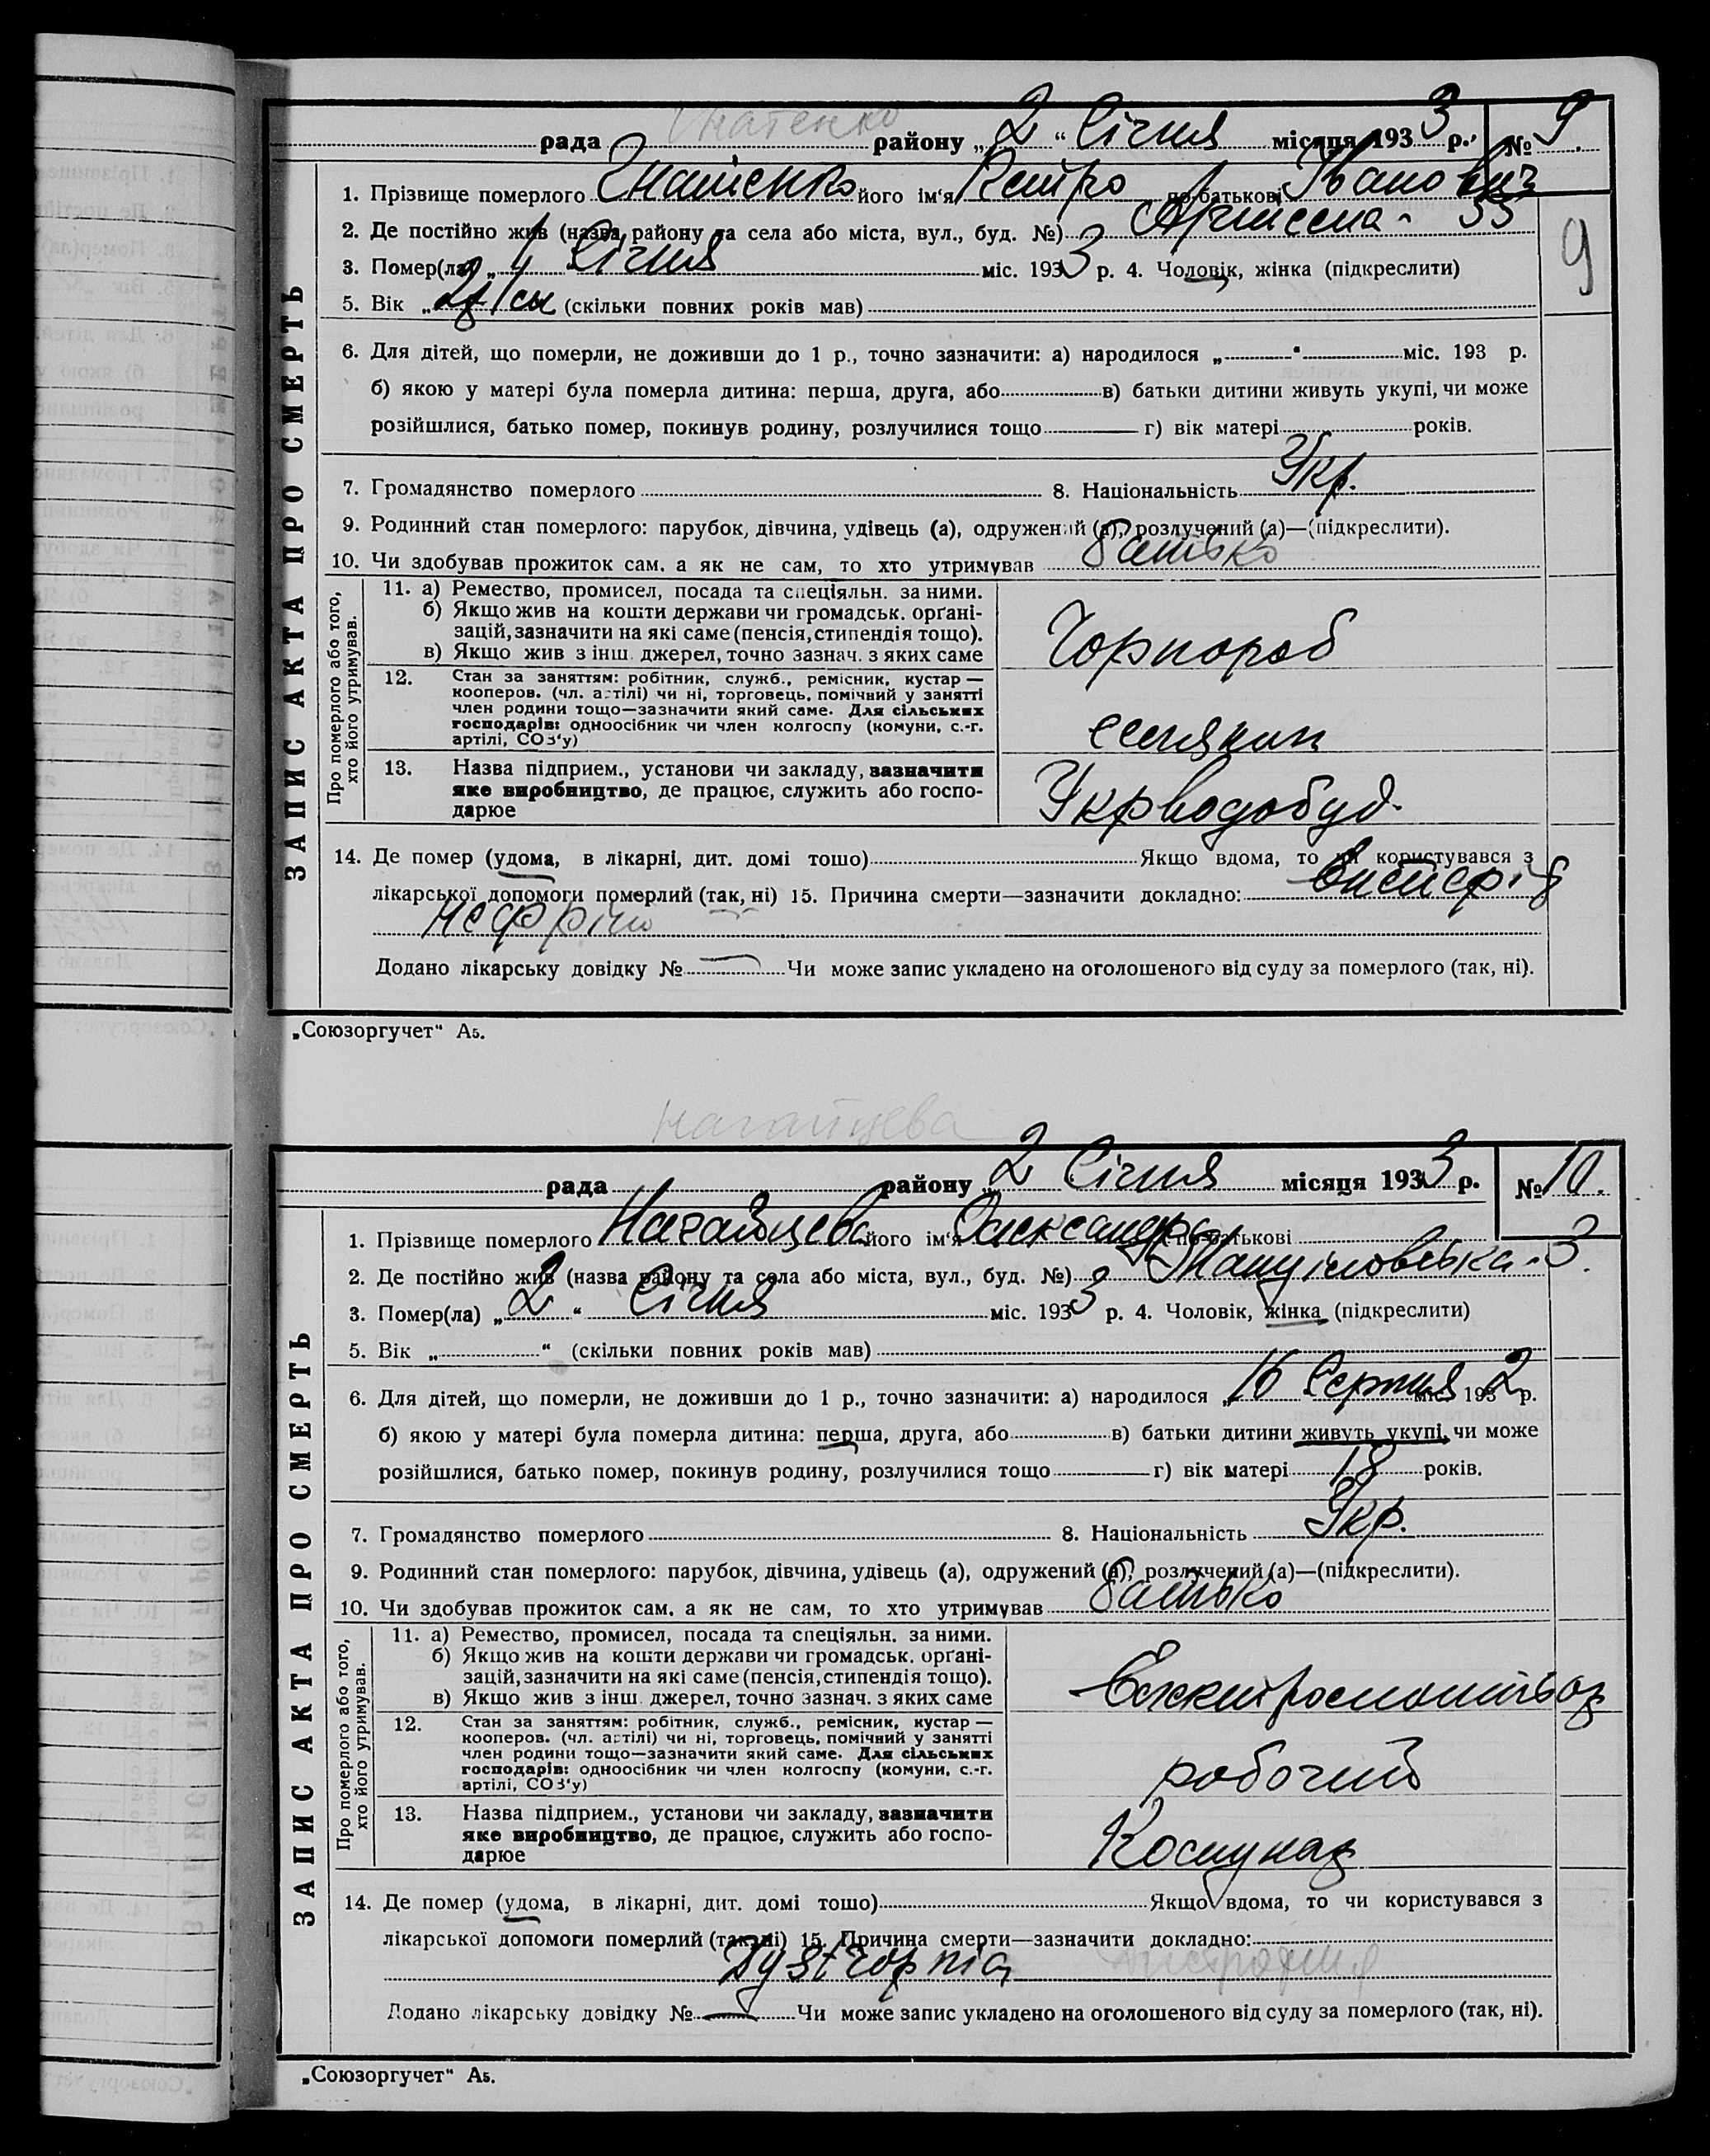 Гнатенко
рада района „2“ Січня місяця 1933 р. № 9.
1. Прізвище померлого Гнатенко його ім'я Петро по-батькові Іванович
2. Де постійно жив (назва району та села або міста, вул., буд. №) 53
3. Помер(ла) „1 Січня міс. 1933 р. 4. Чоловік, жінка (підкреслити)
9
5. Вік „ (скільки повних років мав)
6. Для дітей, що померли, не доживши до 1 р., точно зазначити: а) народилося „ “ міс. 193 р.
б) якою у матері була померла дитина: перша, друга, або в) батьки дитини живуть укупі, чи може
розійшлися, батько помер, покинув родину, розлучилися тощо г) вік матері років.
7. Громадянство померлого 8. Національність Укр.
9. Родинний стан померлого: парубок, дівчина, удівець (а), одружений (а), розлучений (а)—(підкреслити).
10. Чи здобував прожиток сам, а як не сам, то хто утримував батько
ЗАПИС АКТА ПРО СМЕРТЬ
Про померлого або того, хто його утримував.
11. а) Ремество, промисел, посада та спеціяльн. за ними.
б) Якщо жив на кошти держави чи громадськ. орґані-
зацій, зазначити на які саме (пенсія, стипендія тощо).
в) Якщо жив з інш. джерел, точно зазнач. з яких саме
Чорнороб
12. Стан за заняттям: робітник, служб., ремісник, кустар —
кооперов. (чл. артілі) чи ні, торговець, помічний у занятті
член родини тощо—зазначити який саме. Для сільських
господарів: одноосібник чи член колгоспу (комуни, с.-г.
артілі, СОЗ'у)
13. Назва підприєм., установи чи закладу, зазначити
яке виробництво, де працює, служить або госпо-
дарює
Укрводобуд.
14. Де помер (удома, в лікарні, дит. домі тощо) Якщо вдома, то чи користувався з
лікарської допомоги померлий (так, ні) 15. Причина смерти—зазначити докладно:
нефріт
Додано лікарську довідку № Чи може запис укладено на оголошеного від суду за померлого (так, ні).
„Союзоргучет“ А5.
Нагайцева
рада району „2 Січня місяця 1933 р. № 10.
1. Прізвище померлого Нагайцева його ім'я Олександра по-батькові
2. Де постійно жив (назва району та села або міста, вул., буд. №) Мануіловська 3.
3. Помер(ла) „2“ Січня міс. 1933 р. 4. Чоловік, жінка (підкреслити)
5. Вік „ “ (скільки повних років мав)
6. Для дітей, що померли, не доживши до 1 р., точно зазначити: а) народилося „16 Серпня міс. 1932 р.
б) якою у матері була померла дитина: перша, друга, або в) батьки дитини живуть укупі, чи може
розійшлися, батько помер, покинув родину, розлучилися тощо г) вік матері 18 років.
7. Громадянство померлого 8. Національність Укр.
9. Родинний стан померлого: парубок, дівчина, удівець (а), одружений (а), розлучений (а)—(підкреслити).
10. Чи здобував прожиток сам, а як не сам, то хто утримував батько
ЗАПИС АКТА ПРО СМЕРТЬ
Про померлого або того, хто його утримував.
11. а) Ремество, промисел, посада та спеціяльн. за ними.
б) Якщо жив на кошти держави чи громадськ. орґані-
зацій, зазначити на які саме (пенсія, стипендія тощо).
в) Якщо жив з інш. джерел, точно зазнач. з яких саме
12. Стан за заняттям: робітник, служб., ремісник, кустар —
кооперов. (чл. артілі) чи ні, торговець, помічний у занятті
член родини тощо—зазначити який саме. Для сільських
господарів: одноосібник чи член колгоспу (комуни, с.-г.
артілі, СОЗ'у)
робочий
13. Назва підприєм., установи чи закладу, зазначити
яке виробництво, де працює, служить або госпо-
дарює
14. Де помер (удома, в лікарні, дит. домі тощо) Якщо вдома, то чи користувався з
лікарської допомоги померлий (так, ні) 15. Причина смерти—зазначити докладно:
Dystropnia Дистрофия
Додано лікарську довідку № Чи може запис укладено на оголошеного від суду за померлого (так, ні).
„Союзоргучет“ А5.